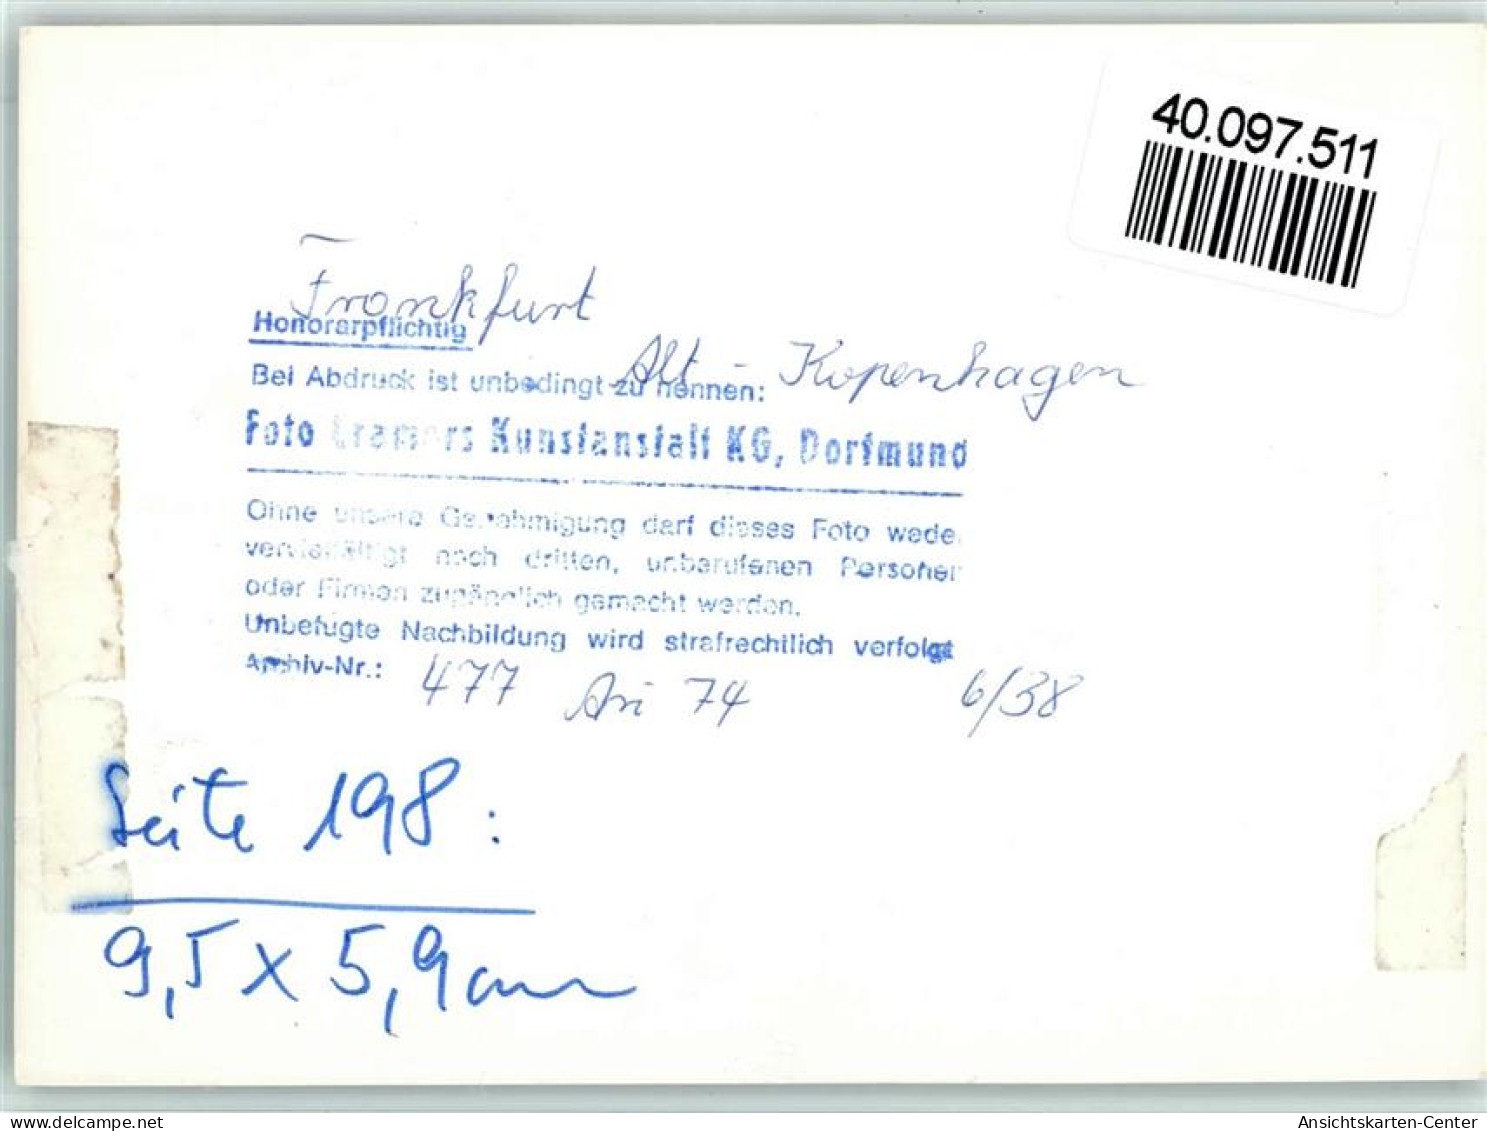 40.097.511
Frankfurt
Honorarpflichtig
Alt - Kopenhagen
Bei Abdruck ist unbedingt zu nennen:
Foto Cramers Kunstanstalt KG, Dortmund
Ohne unsere Genehmigung darf dieses Foto wede
vervielfältigt noch dritten, unberufenen Personen
oder Firmen zugänglich gemacht werden.
Unbefugte Nachbildung wird strafrechtlich verfolgt
Archiv-Nr.: 477 74 6/38
Seite 198:
9,5 x 5,9 cm
delcampe.net
Ansichtskarten-Center